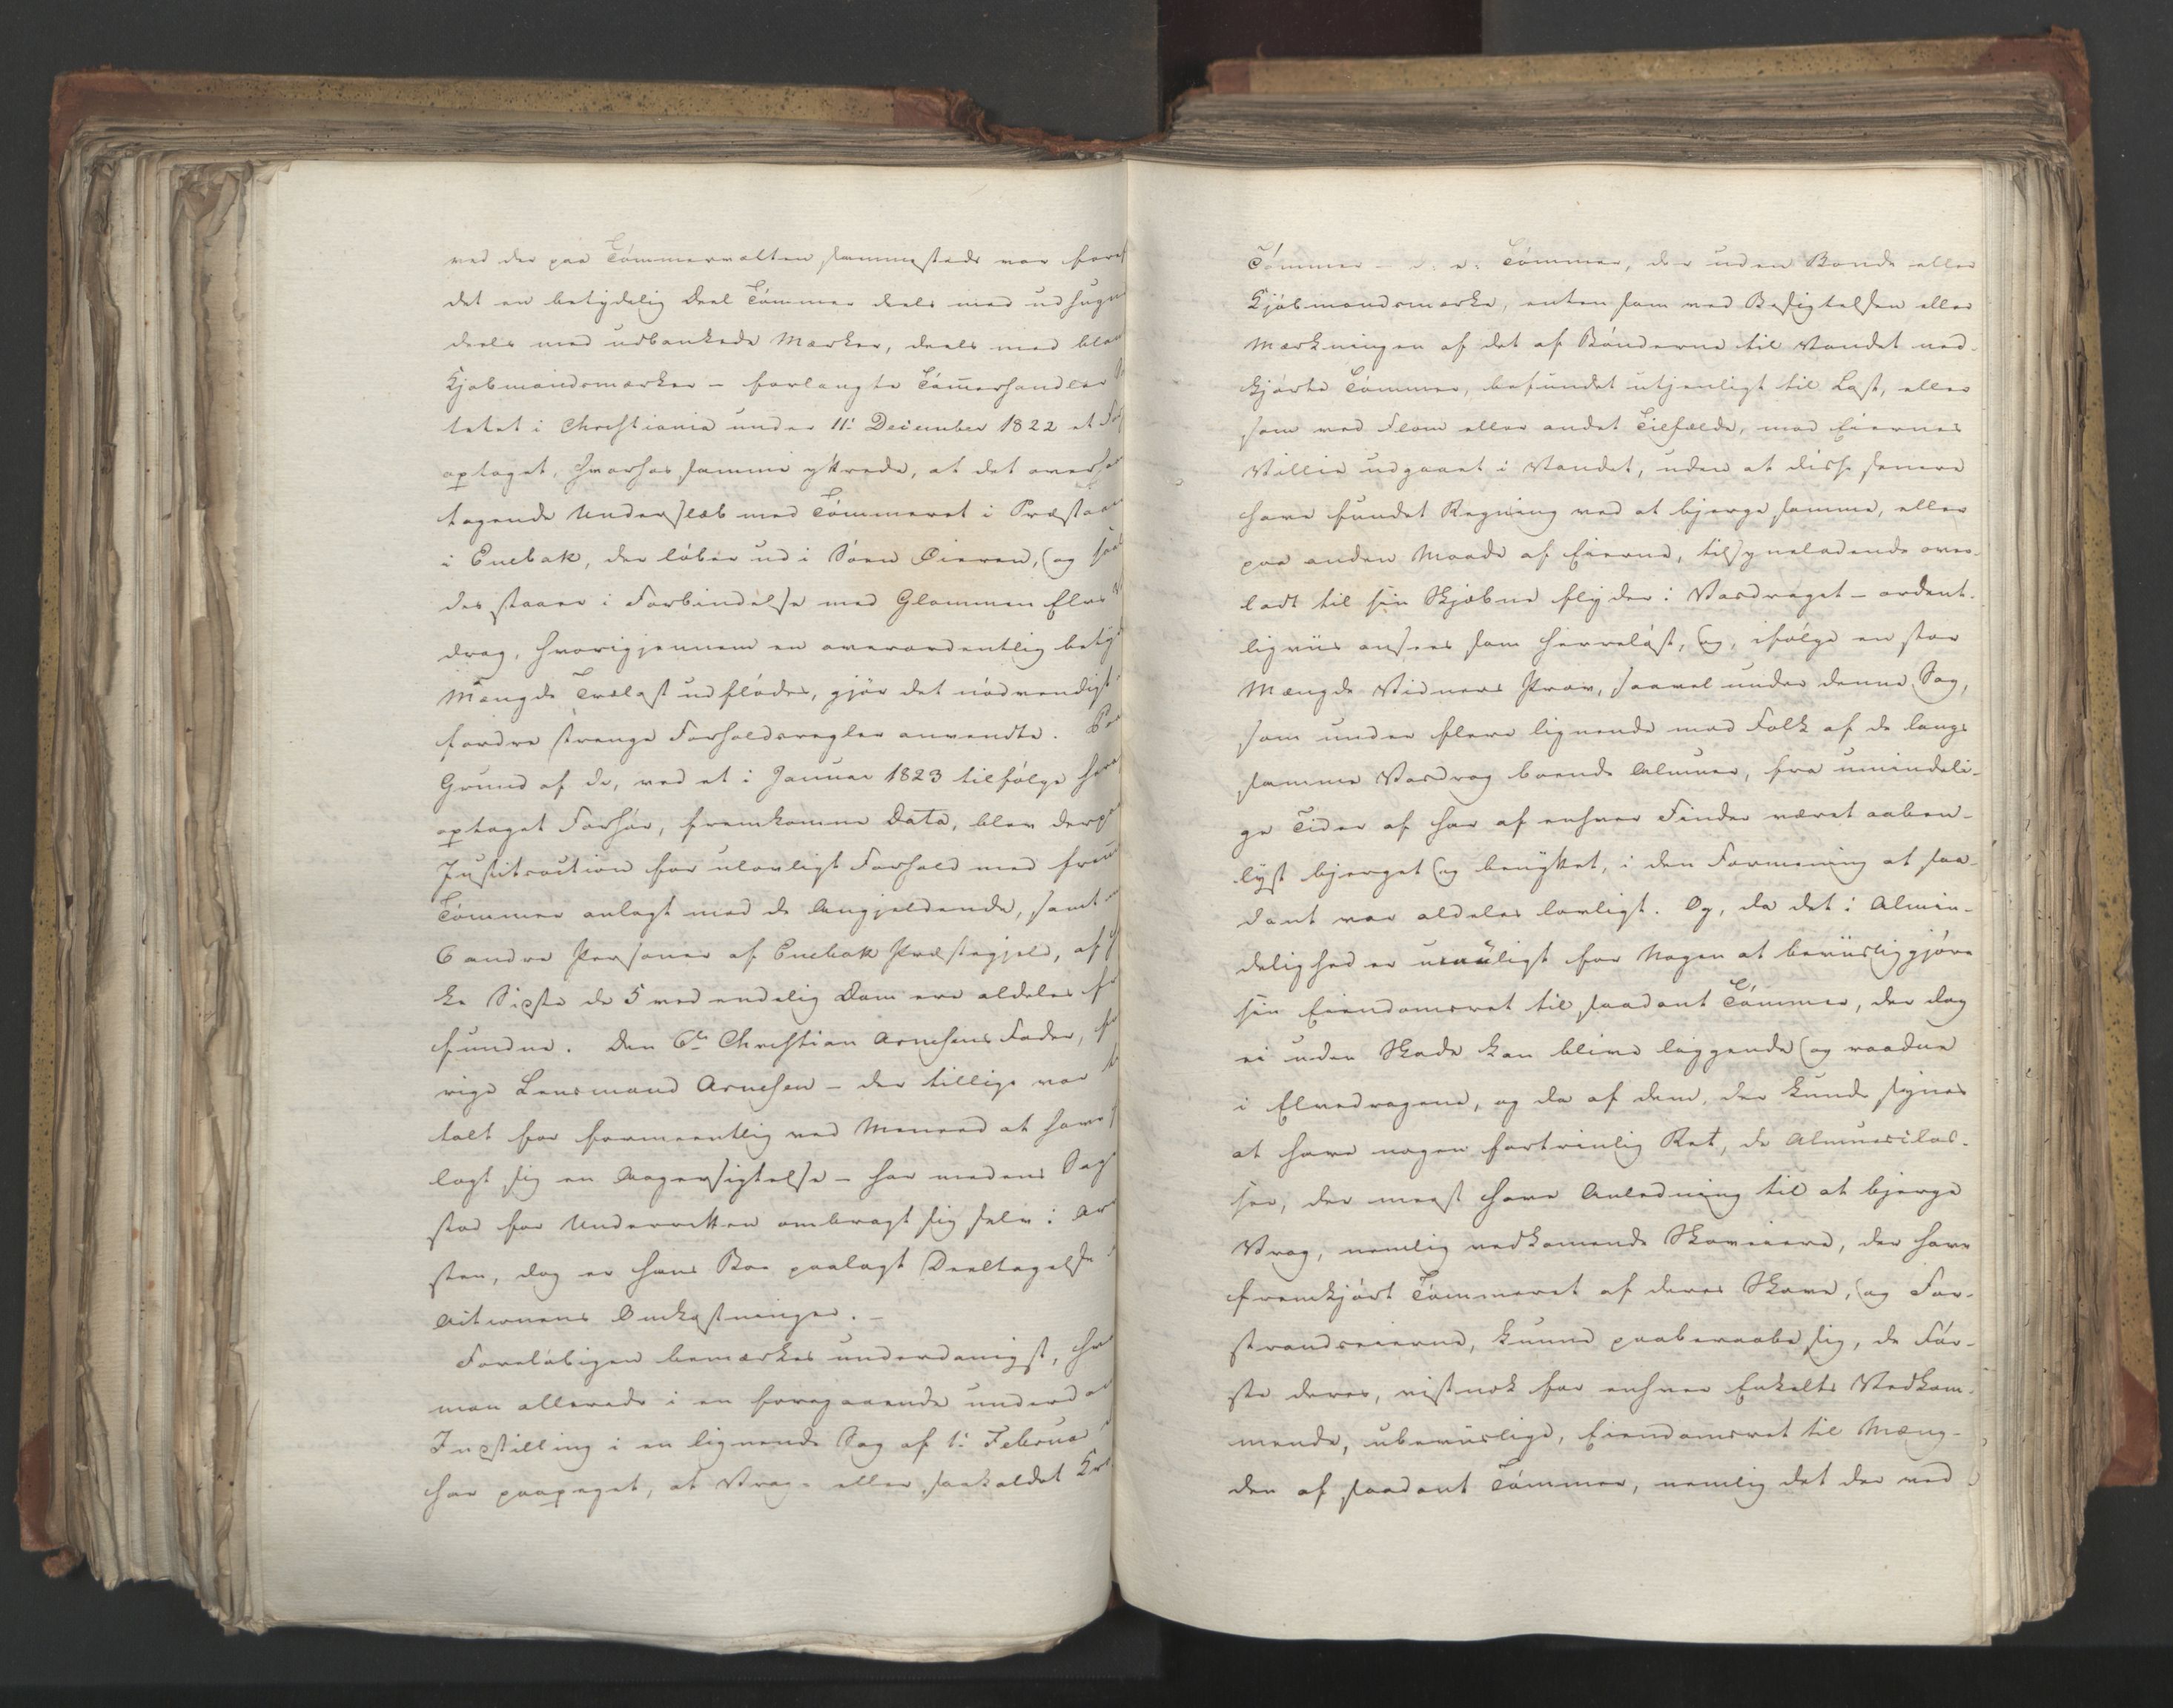 ved der paa Tømmervalten sammesteds var
det en betydelig Deel Tømmer deels med udhugne
deels med udbankede Mærker, deels med
Kjøbmandsmærker – forlangte Tømerhandler
tetet i Christiania under 11: December 1822 et
optaget, hvorhos samme yttrede, at det overha
tagende Underslæb med Tømmeret i
i Enebak, der løber ud i Søen Øieren, og saa
des staaer i Forbindelse med Glommen Elvs
drag, hvorigjennem en overordentlig bety
Mængde Trælast udflødes, gjør det nødvendigt
fordre strenge Forholdsregler anvendte. Paa
Grund af de, ved et i Januar 1823 tilfølge
optaget Forhør, fremkomne Data, blev derpaa
Justitsaction for ulovligt Forhold med
Tømmer anlagt mod de Angjeldende, samt
6 andre Personer af Enebak Præstegjeld, af
ke Sidste de 5 ved endelig Dom ere aldeles
fundne. Den 6te Christian Arnesens Fader,
rige Lensmand Arnesen – der tillige var
talt for formeentlig ved Meneed at have
lagt sig en Aagersigtelse – har medens Sag
stod for Underretten ombragt sig selv i Ar
sten, dog er hans Boe paalagt Deeltagelse i
Actionens Omkostninger. –
Foreløbigen bemærkes underdanigst,
man allerede i en foregaaende underd
Indstilling i en lignende Sag af 1: Februar
har paapeget, at Vrag- eller saakaldet
Tømmer – d: e: Tømmer, der uden Bonde eller
Kjøbmandsmærke, enten som ved Besigtelsen eller
Mærkningen af det af Bønderne til Vandet ned-
kjørte Tømmer, befundet utjenligt til Last, eller
som ved Flom eller andet Tilfælde, mod Eiernes
Villie udgaaet i Vandet, uden at disse senere
have fundet Regning ved at bjerge samme, eller
paa anden Maade af Eierne, tilsyneladende over-
ladt til sin Skjæbne flyder i Vasdraget – ordent-
ligviis ansees som herreløst, og, ifølge en stor
Mængde Vidners Prov, saavel under denne Sag,
som under flere lignende mod Folk af de langs
samme Vasdrag boende Almuer, fra umindeli-
ge Tider af har af enhver Finder været aaben-
lyst bjerget og benyttet, i den Formening at saa-
dant var aldeles lovligt. Og, da det i Almin-
delighed er umuligt for Nogen at beviisliggjøre
sin Eiendomsret til saadant Tømmer, der dog
ei uden Skade kan blive liggende og raadne
i Elvedragene, og da af dem, der kunde synes
at have nogen fortrinlig Ret, de Almuesclas-
ser, der meest have Anledning til at bjerge
Vrag, nemlig vedkomende Skoveiere, der have
fremkjørt Tømmeret af deres Skove, og For-
strandseierne, kunne paaberaabe sig, de Før-
ste deres, vistnok for enhver Enkelts Vedkom-
mende, ubeviislige, Eiendomsret til Mæng-
den af saadant Tømmer, nemlig det der ved